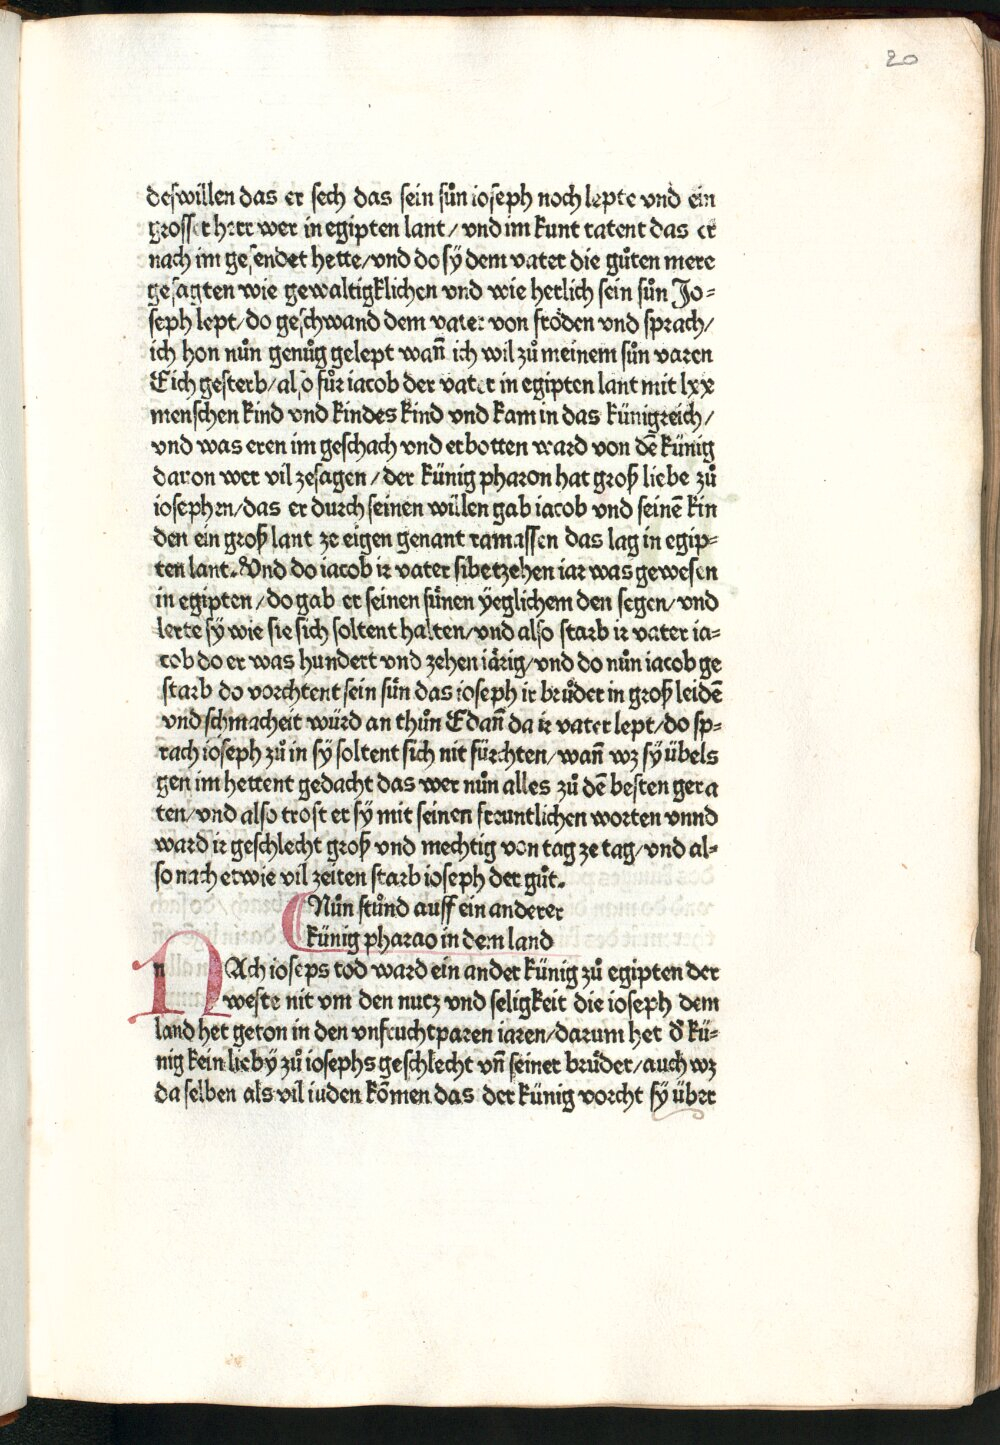 20
deſwillen das er ſech das ſein ſůn ioſeph noch lepte vnd ein
groſſer herr wer in egipten lant / vnd im kunt tatent das er
nach im geſendet hette/vnd do ſÿ dem vater die gůten mere
geſagten wie gewaltigklichen vnd wie herlich ſein ſůn Jo⸗
ſeph lept/do geſchwand dem vater von fröden vnd ſprach/
ich hon nůn genůg gelept wañ ich wil zů meinem ſůn varen
E ich geſterb/alſo fůr iacob der vater in egipten lant mit lxx
menſchen kind vnd kindes kind vnd kam in das künigreich/
vnd was eren im geſchach vnd erbotten ward von dē künig
daron wer vil zeſagen/der künig pharon hat groß liebe zů
ioſephen/das er durch ſeinen willen gab iacob vnd ſeinē kin
den ein groß lant ze eigen genant ramaſſen das lag in egip⸗
ten lant. Vnd do iacob ir vater ſibetzehen iar was geweſen
in egipten/do gab er ſeinen ſünen ÿeglichem den ſegen/vnd
lerte ſÿ wie ſie ſich ſoltent halten/vnd alſo ſtarb ir vater ia⸗
cob do er was hundert vnd zehen iärig/vnd do nůn iacob ge
ſtarb do vorchtent ſein ſün das ioſeph ir brůder in groß leidē
vnd ſchmacheit würd an thůn E dañ da ir vater lept/do ſp⸗
rach ioſeph zů in ſÿ ſoltent ſich nit fürchten/wañ wz ſÿ übels
gen im hettent gedacht das wer nůn alles zů dē beſten gera
ten/vnd alſo troſt er ſÿ mit ſeinen freuntlichen worten vnnd
ward ir geſchlecht groß vnd mechtig von tag ze tag/vnd al⸗
ſo nach etwie vil zeiten ſtarb ioſeph der gůt.
Nůn ſtůnd auff ein anderer
künig pharao in dem land
NAch ioſeps tod ward ein ander künig zů egipten der
weſte nit vm den nutz vnd ſeligkeit die ioſeph dem
land het geton in den vnfruchtparen iaren/darum het d̓ kü⸗
nig kein lieby zů ioſephs geſchlecht vñ ſeiner brüder/auch wz
da ſelben als vil iuden kōmen das der künig vorcht ſÿ über